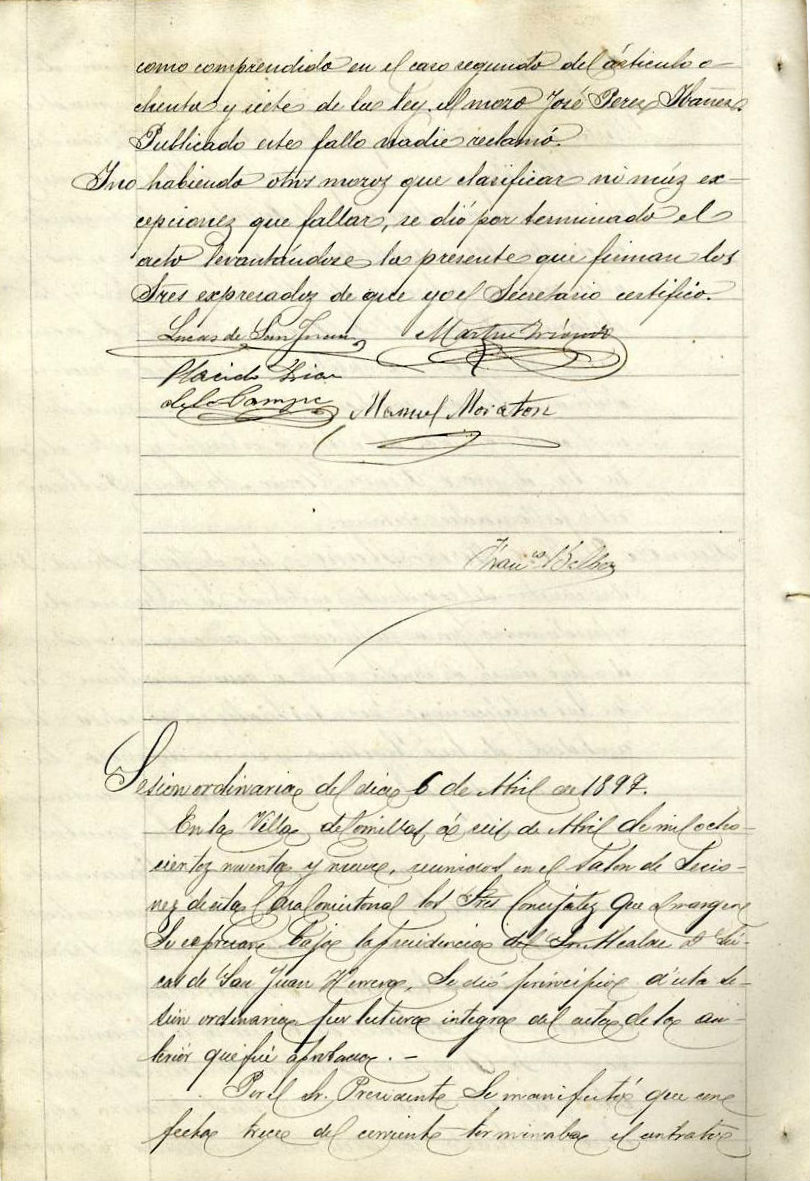 como comprendido en el caso segundo del ártículo o-
chenta y siete de la ley, el mozo José Perez Ibañez.
Publicado este fallo nadie reclamó.
Y no habiendo otros mozos que clasificar ni más ex-
cepciones que fallar, se dió por terminado el
acto levantándose la presente que firman los
Sres expresados de que yo el Secretario certifico.
Lucas de San Juan Martin
Placido
de la Campa Manuel Moraton
Fran.co
Sesion ordinaria del dia 6 de Abril de 1899.
En la Villa de Comillas á seis de Abril de mil ocho-
cientos noventa y nueve, reunidos en el Salon de Secio-
nes de esta Casa Consistorial los Sres Concejales que al margen
Se expresan bajo la presidencia del Sr. Alcalde D. Lu-
cas de San Juan Herrera, Se dió principio á esta se-
sión ordinaria por lectura integra del acta de la an-
terior que fué aprobada. -
Por el Sr. Presidente Se manifestó que con
fecha trece del corriente terminaba el contrato